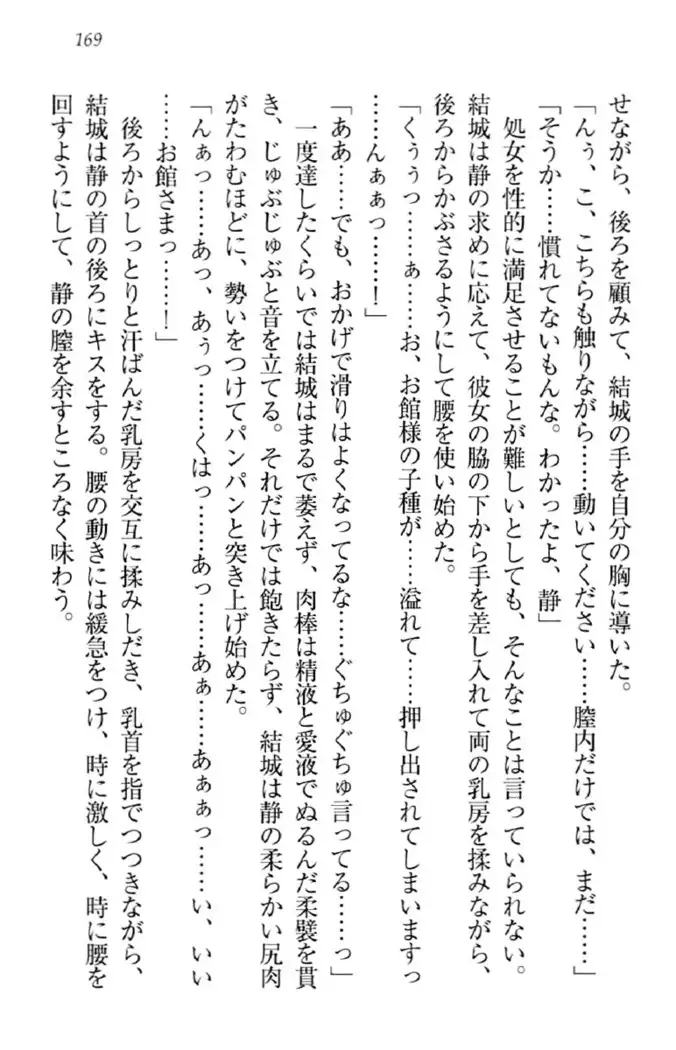 169
せながら、後ろを顧みて、結城の手を自分の胸に導いた。
「んぅ、こ、こちらも触りながら……動いてください……膣内だけでは、まだ……」
「そうか……慣れてないもんな。わかったよ、静」
処女を性的に満足させることが難しいとしても、そんなことは言っていられない。
結城は静の求めに応えて、彼女の脇の下から手を差し入れて両の乳房を揉みながら、
後ろからかぶさるようにして腰を使い始めた。
「くぅぅっ……ぁ……お、お館様の子種が……溢れて……押し出されてしまいますっ
……んぁぁっ……！」
「ああ……でも、おかげで滑りはよくなってるな……ぐちゅぐちゅ言ってる……っ」
一度達したくらいでは結城はまるで萎えず、肉棒は精液と愛液でぬるんだ柔襞を貫
き、じゅぶじゅぶと音を立てる。それだけでは飽きたらず、結城は静の柔らかい尻肉
がたわむほどに、勢いをつけてパンパンと突き上げ始めた。
「んぁっ……あっ、あぅっ……くはっ……あっ……あぁ……あぁぁっ……い、いい
……お館さまっ……！」
後ろからしっとりと汗ばんだ乳房を交互に揉みしだき、乳首を指でつつきながら、
結城は静の首の後ろにキスをする。腰の動きには緩急をつけ、時に激しく、時に腰を
回すようにして、静の膣を余すところなく味わう。